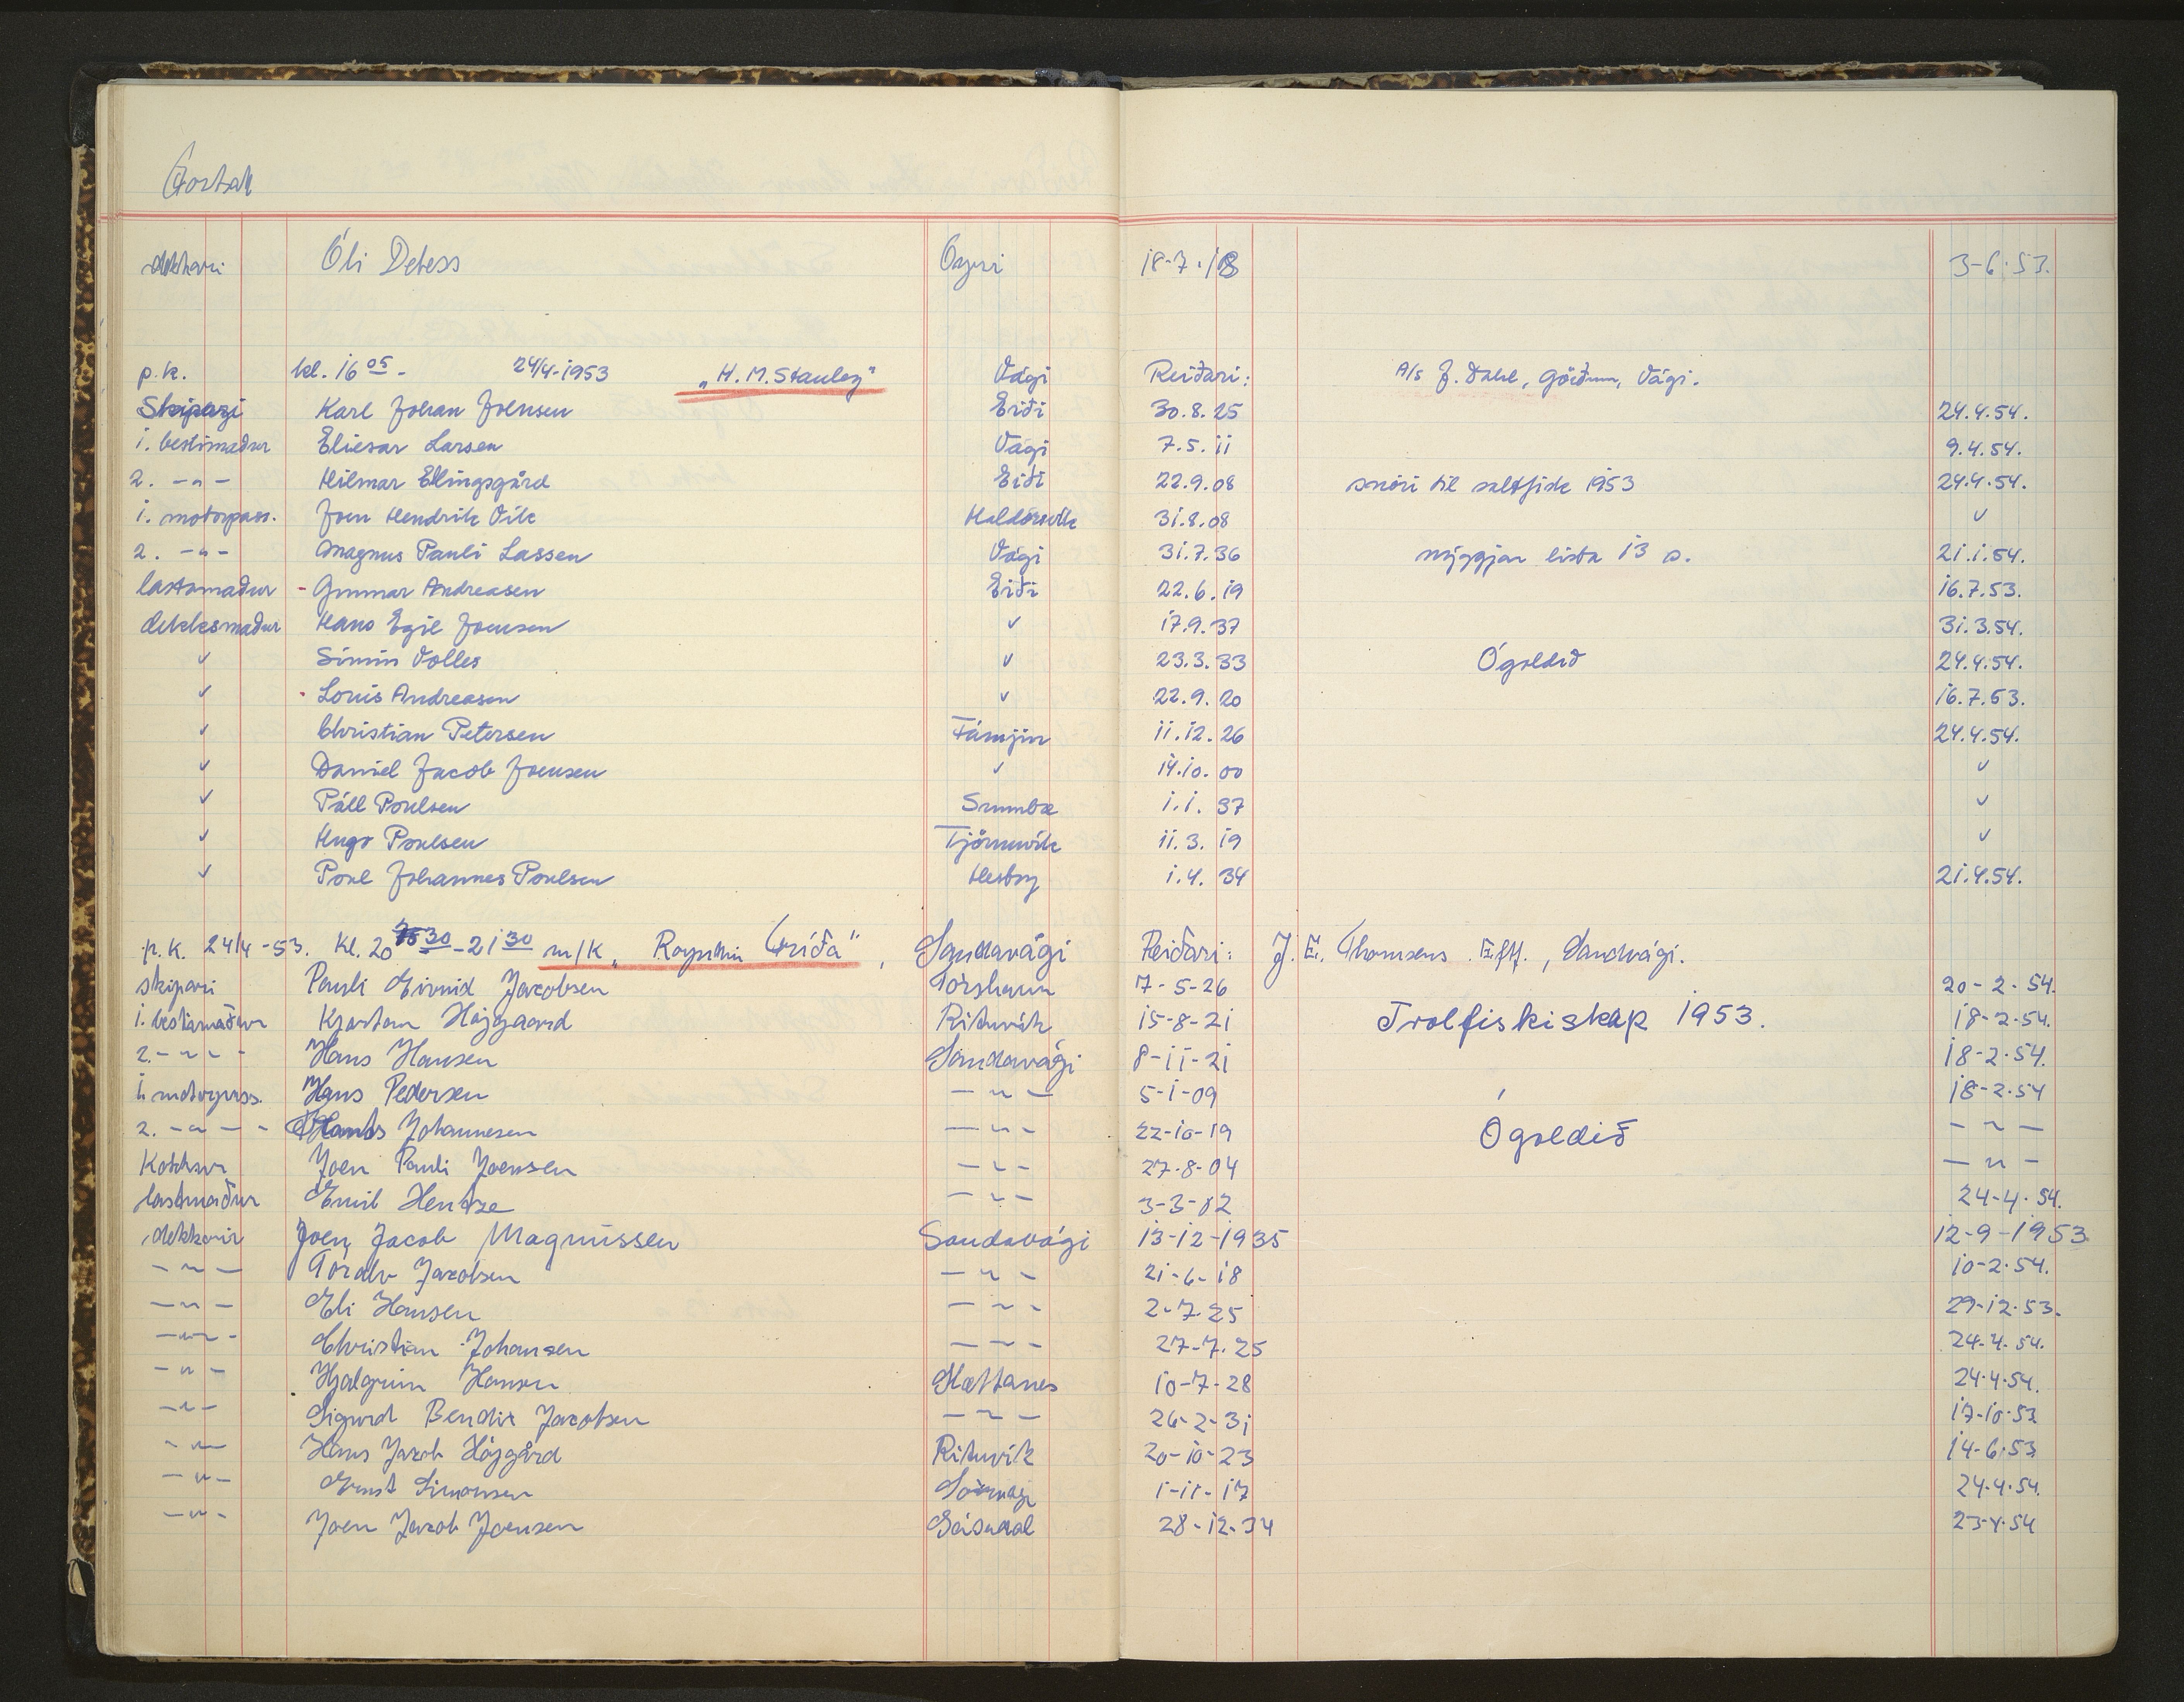 dekkari Óli Debess Oyri 18-7-18 3-6-53.
p.k. kl. 16 05 - 24/4-1953 "H. M. Stanley" Vági Reiðari: A/s J. Dahl, Vági.
Skipari Karl Johan Joensen Eiði 30.8.25 24.4.54.
1. bestimaður Eliesar Larsen Vági 7.5.11 9.4.54.
2. -"- Hilmar Ellingsgård Eiði 22.9.08 snøri til saltfisk 1953 24.4.54.
1. motorpass. Joen Hendrik Vik Haldórsvik 31.8.08 ✓
2. -"- Magnus Pauli Lassen Vági 31.7.36 nýggjan lista 13 o. 21.1.54.
lastamaður - Gunnar Andreasen Eiði 22.6.19 16.7.53.
dekksmaður Hans Egil Joensen ✓ 17.9.37 31.3.54.
✓ Simin Volles ✓ 23.3.33 Ógoldið 24.4.54.
✓ - Louis Andreasen ✓ 22.9.20 16.7.53.
✓ Christian Petersen Fámjin 11.12.26 24.4.54.
✓ Daniel Jacob Joensen ✓ 14.10.00 ✓
✓ Páll Poulsen Sumba 1.1.37 ✓
✓ Hugo Poulsen Tjörnuvik 11.3.19 ✓
✓ Poul Johannes Poulsen Hesboy 1.4.34 21.4.54.
p.k. 24/4-53. Kl. 20 30 - 21 30 m/k "Royndin Fríða", Sandavági Reiðari: J. E. Thomsens Eftf., Sandvági.
skipari Pauli Eivind Jacobsen Tórshavn 7-5-26 20-2-54.
1. bestamaður Kjartan Højgaard Rituvík 15-8-21 Trolfiskiskap 1953. 18-2-54.
2. - " - Hans Hansen Sandavági 8-11-21 18-2-54.
1. motorpass. Hans Pedersen - " - 5-1-09 18-2-54
2. - " - Johannesen - " - 22-10-19 Ógoldið - " -
Kokkur Joen Pauli Joensen - " - 27-8-04 - " -
lastmaður Emil Hentze - " - 3-3-02 24-4-54.
dekkarir Joen Jacob Magnussen Sandavági 13-12-1935 12-9-1953
- " - Tórálv Jacobsen - " - 21-6-18 10-2-54.
- " - Eli Hansen - " - 2-7-25 29-12-53.
- " - Christian Johansen - " - 27-7-25 24-4-54.
- " - Hjalgrim Hansen Slættanes 10-7-28 24-4-54.
- " - Sigurd Bendix Jacobsen - " - 26-2-31 17-10-53
- " - Hans Jacob Højgård Rituvik 20-10-23 14-6-53
- " - Ernst Simonsen Sörvági 1-11-17 24-4-54.
- " - Joen Jacob Joensen Gásadal 28-12-34 23-4-54